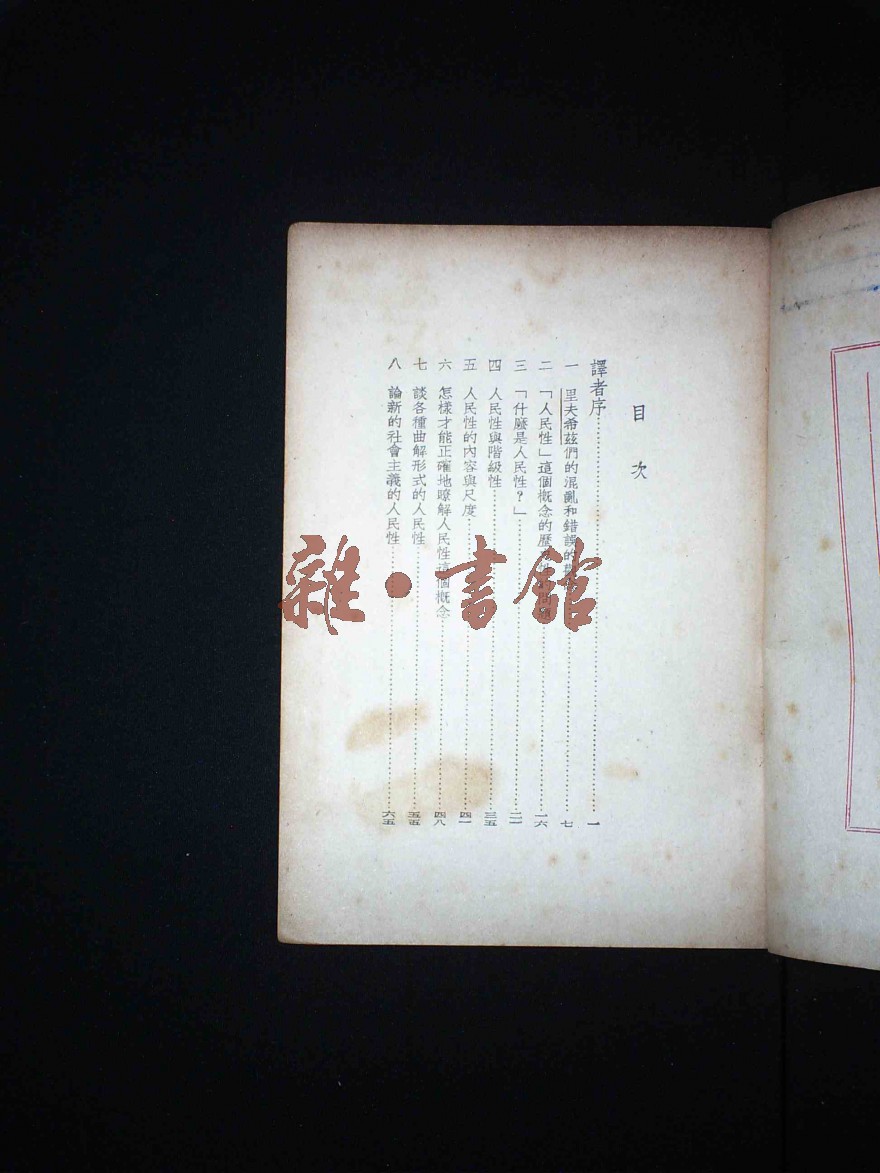 目次
譯者序……一
一 里夫希茲們的混亂和錯誤的……七
二 「人民性」這個概念的歷……一六
三 「什麼是人民性？」……二一
四 人民性與階級性……三五
五 人民性的內容與尺度……四一
六 怎樣才能正確地暸解人民性這個概念……四八
七 談各種曲解形式的人民性……五五
八 論新的社會主義的人民性……六五
雜·書館